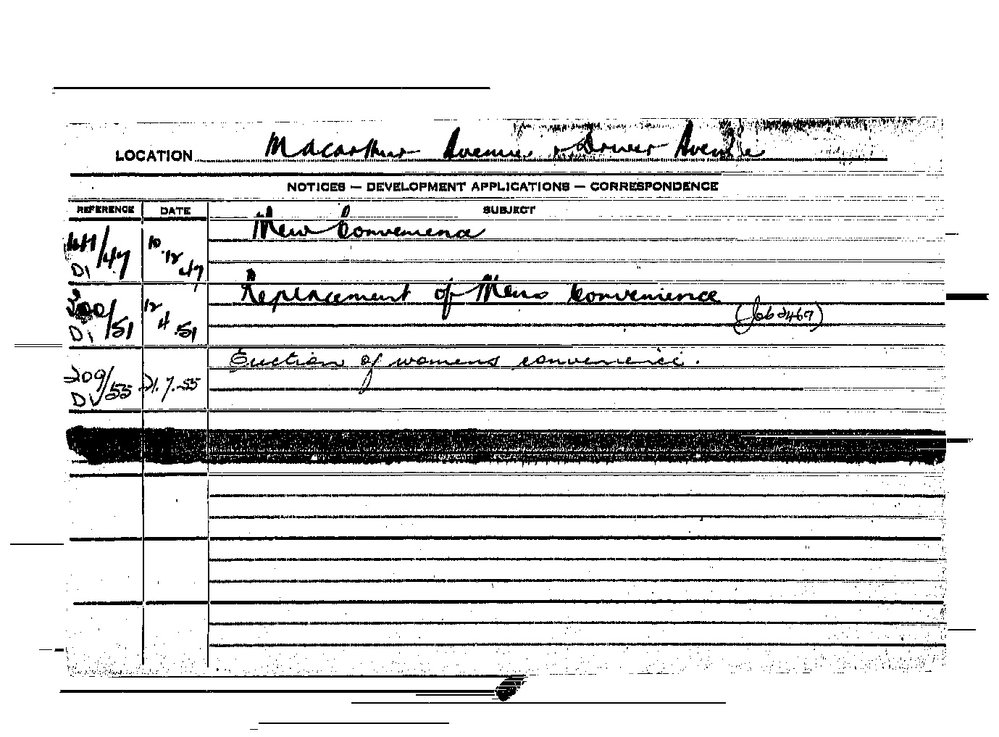 LOCATION Macarthur Avenue & Driver Avenue
NOTICES — DEVELOPMENT APPLICATIONS — CORRESPONDENCE
REFERENCE DATE SUBJECT
/47 10 12 47 Mens Convenience
D1
200/51 12 4 51 Replacement of Mens Convenience
D1 (Job 2467)
209/55 21.7.55 Erection of womens convenience.
DV